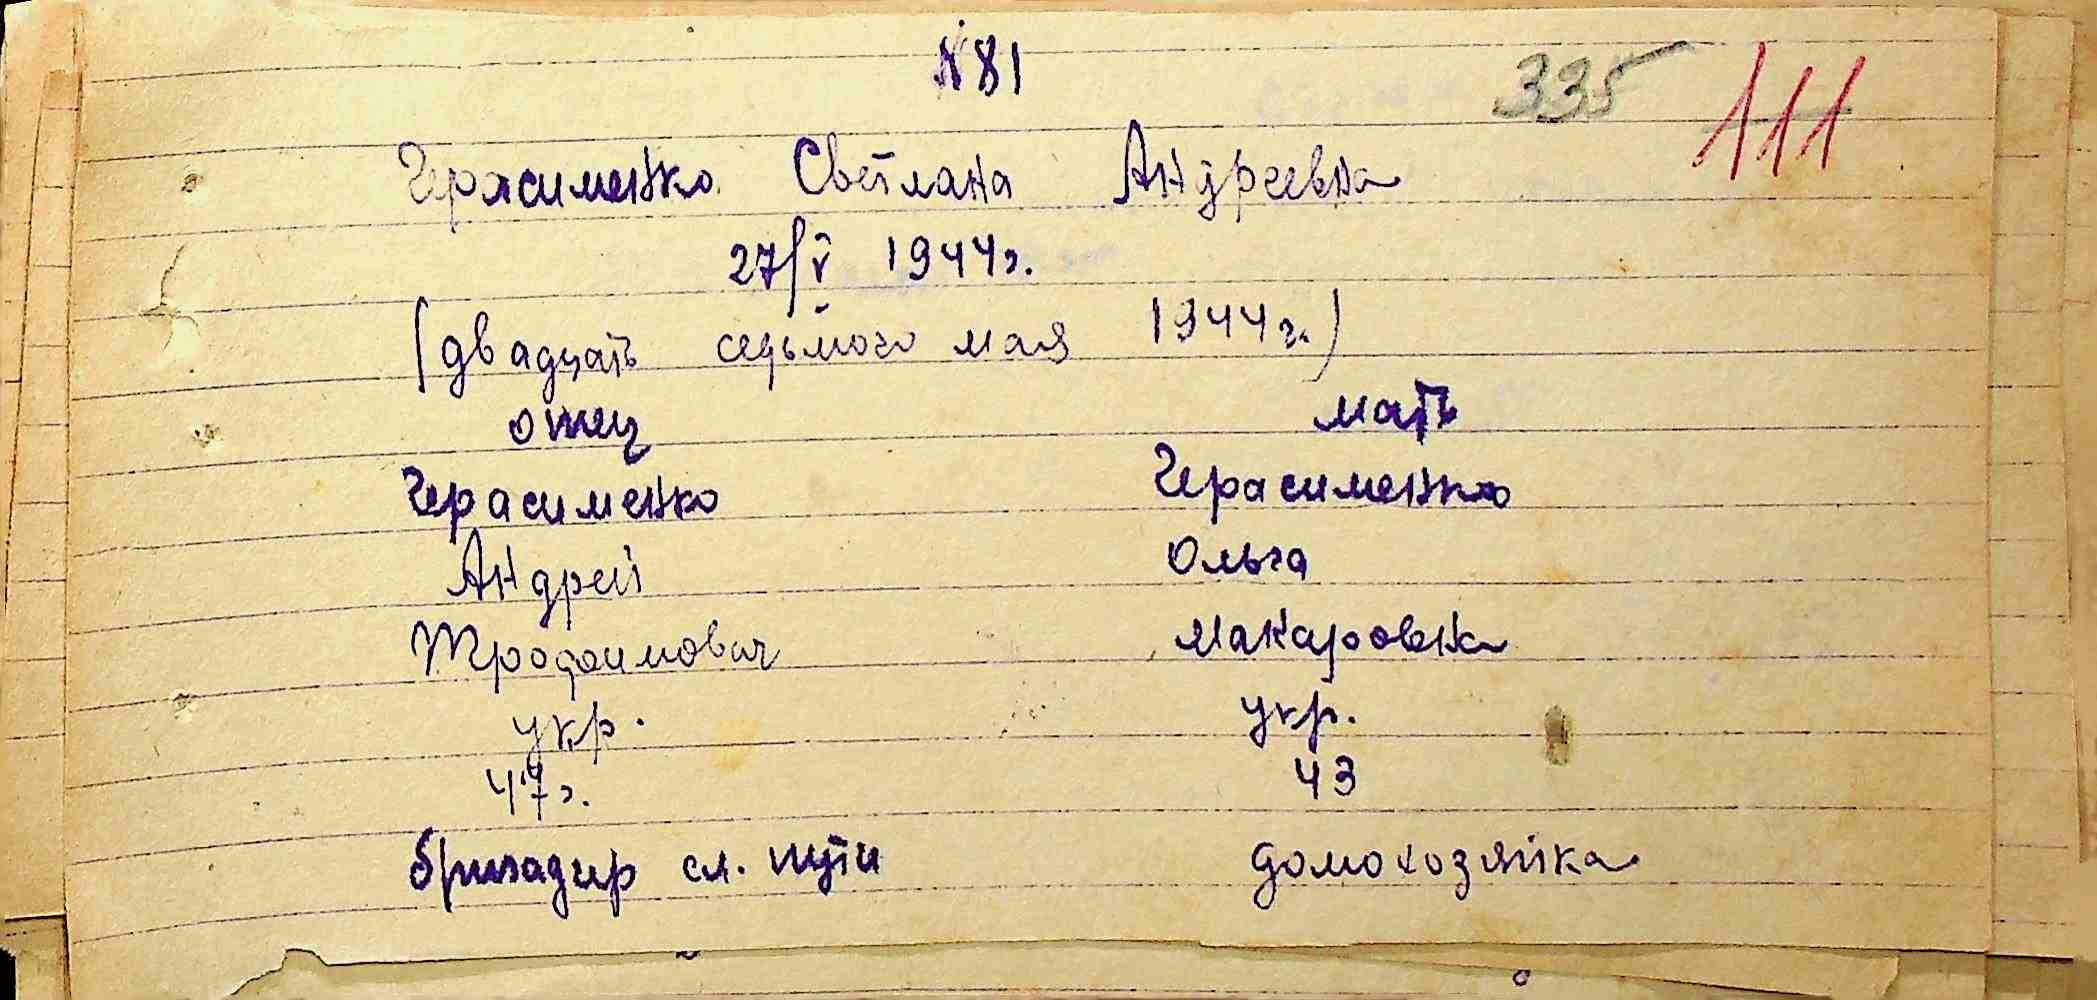 №81
335 111
Герасименко Светлана Андреевна
27/V 1944г.
(двадцать седьмого мая 1944г.)
отец мать
Герасименко Герасименко
Андрей Ольга
Трофимович Макаровна
укр. укр.
47г. 43
бригадир сл. пути домохозяйка